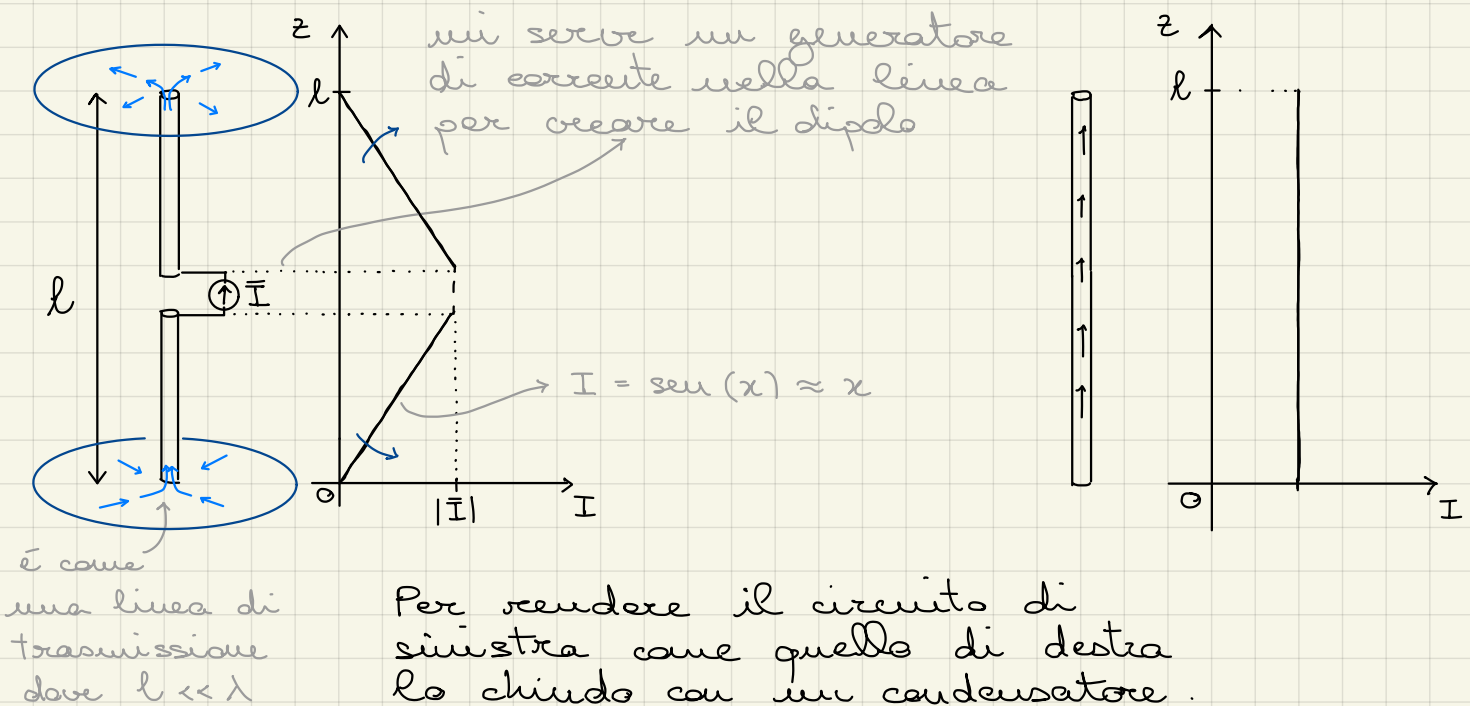 mi serve un generatore
di corrente nella linea
per creare il dipolo
z
l
l
Ī
I = sen (x) ≈ x
0
|Ī|
I
z
l
0
I
é come
una linea di
trasmissione
dove l << λ
Per rendere il circuito di
sinistra come quello di destra
lo chiudo con un condensatore.